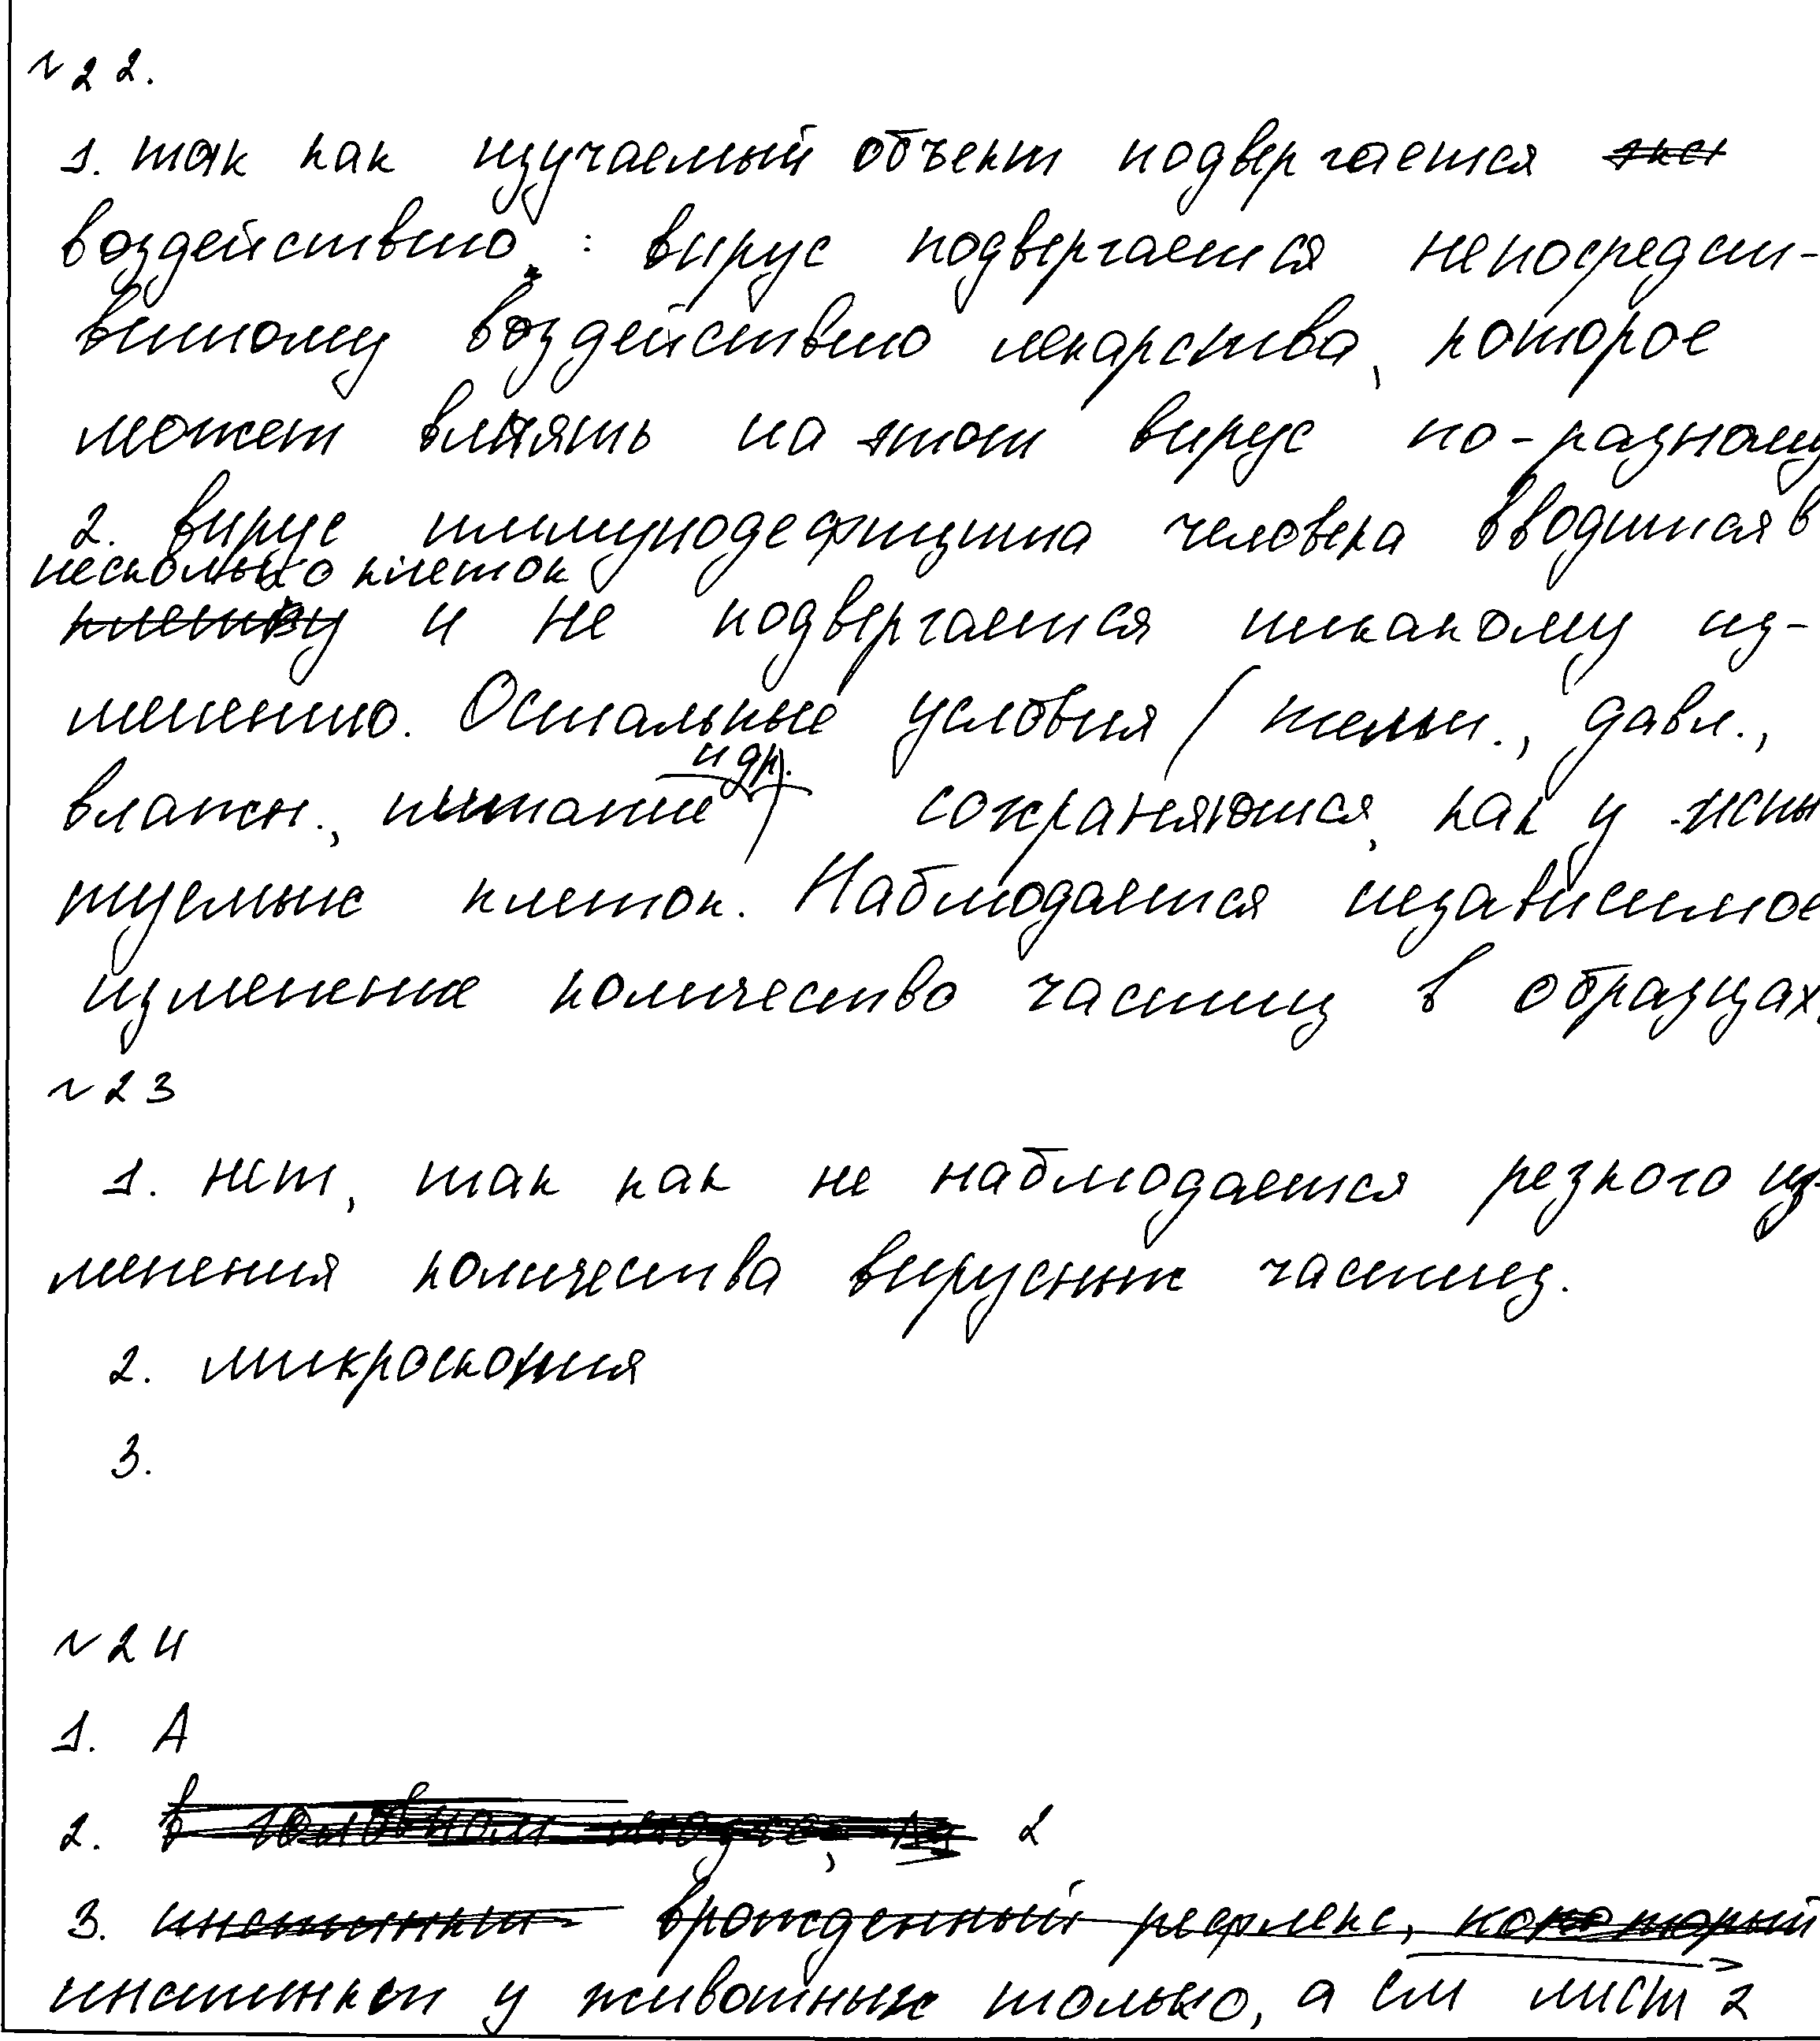 №22.
1. так как изучаемый объект подвергается
воздействию : вирус подвергается непосредст-
венному воздействию лекарства, которое
может влиять на этот вирус по-разному
2. вирус иммунодефицита человека вводится в
несколько клеток
и не подвергается никакому из-
менению. Остальные условия (темп., давл.,
влажн., питание и др.) сохраняются, как у испы
туемых клеток. Наблюдается независимое
изменение количество частиц в образцах.
№23
1. нет, так как не наблюдается резкого из-
менения количества вирусных частиц.
2. микроскопия
3.
№24
1. А
2. 2
3. инстинкт врожденный рефлекс, который
инстинкт у животных только, а см лист 2